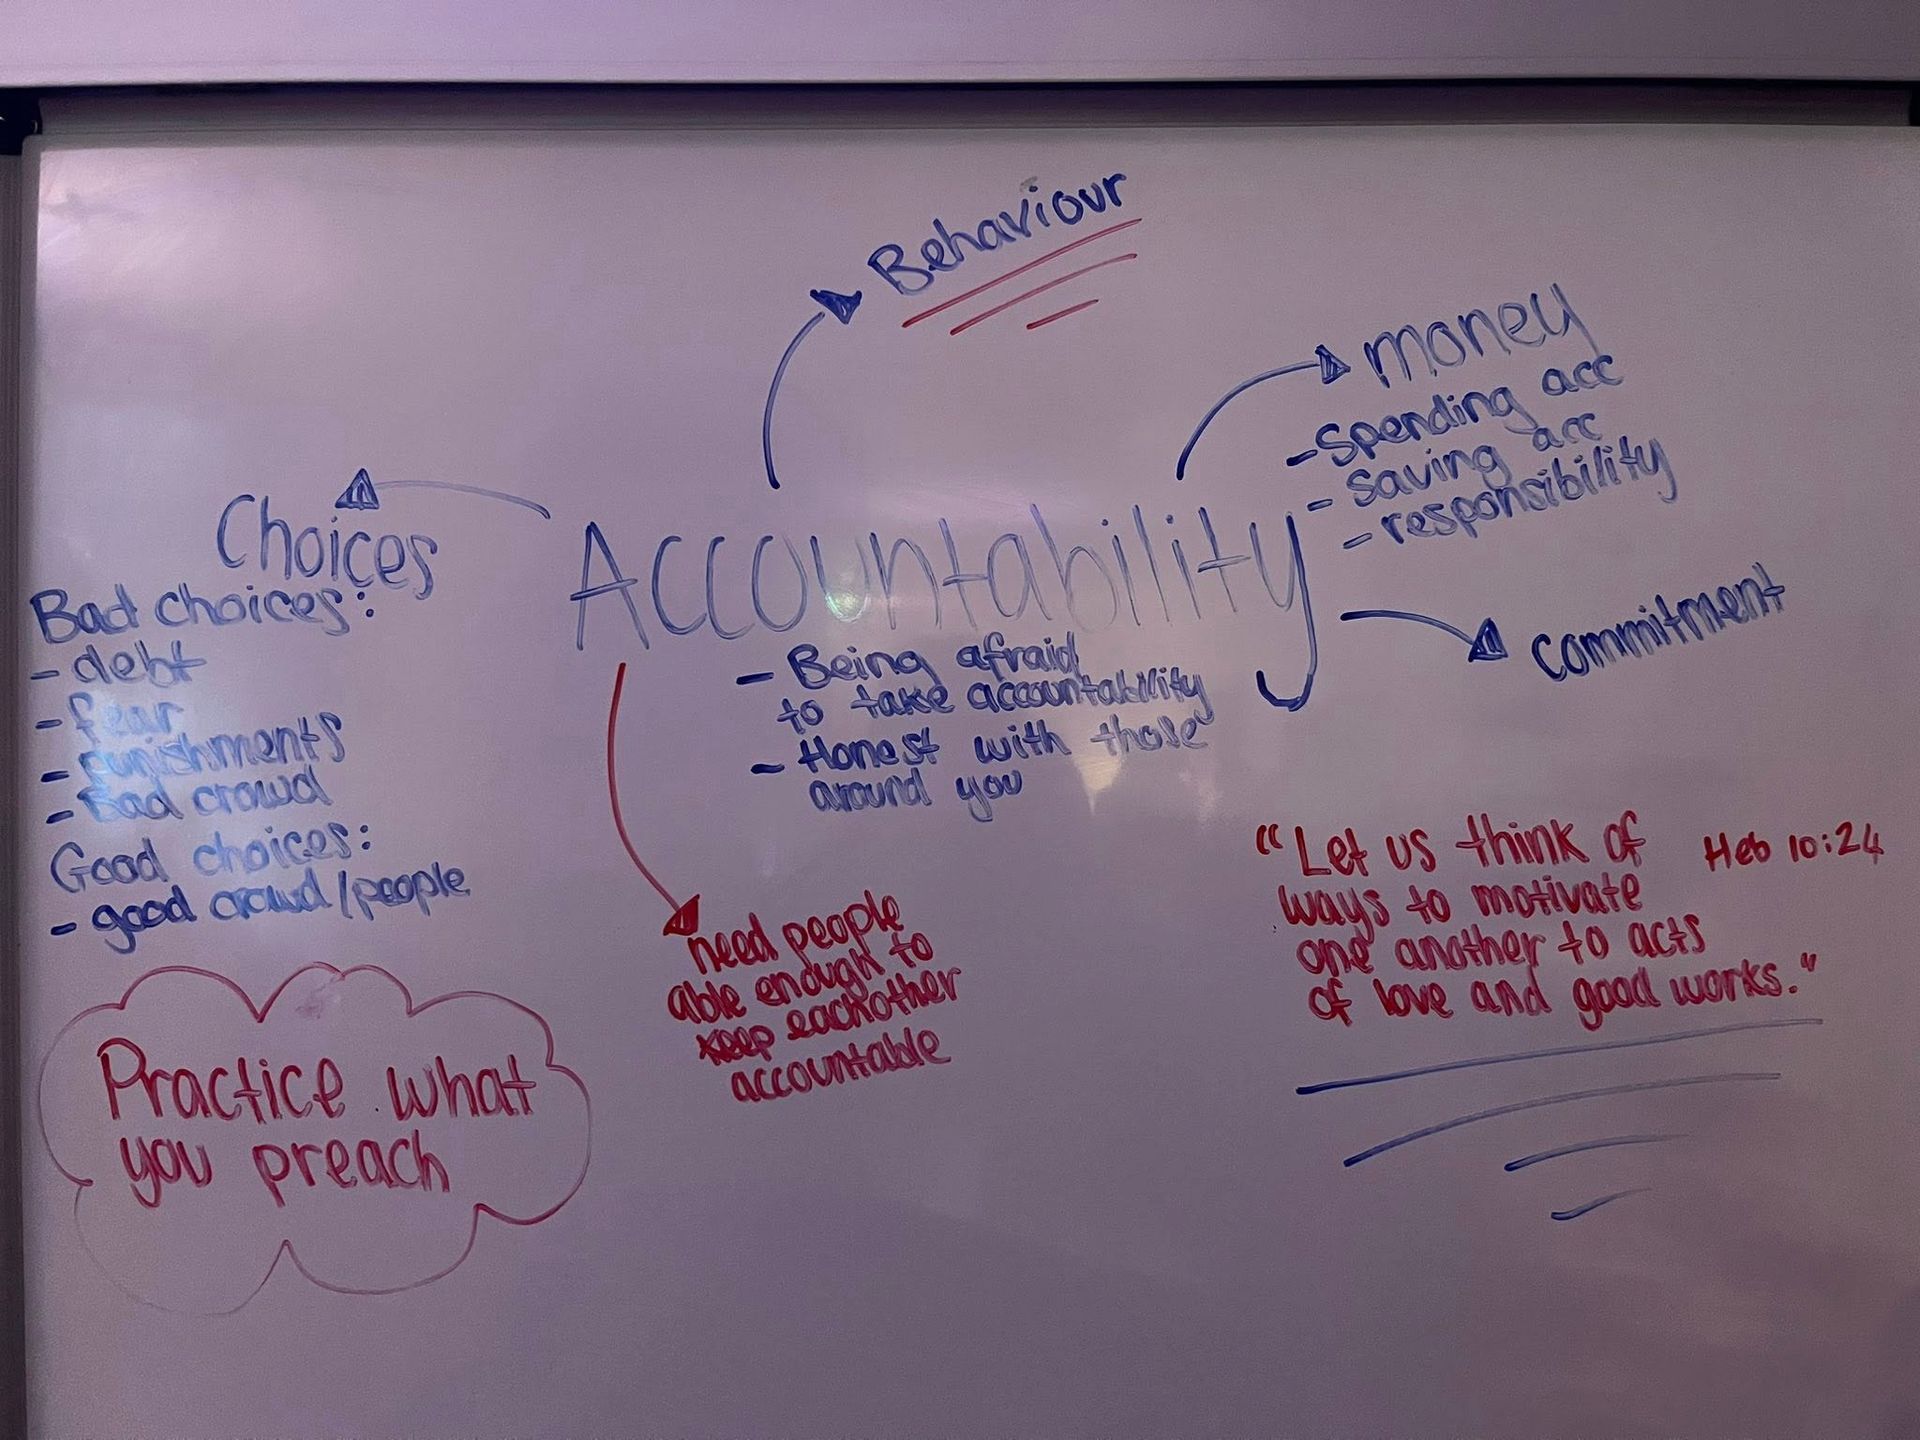 Behaviour
money
- Spending acc
- Saving acc
- responsibility
Choices
Bad choices:
- debt
- fear
- punishments
- Bad crowd
Good choices:
- good crowd/people
Accountability
- Being afraid
to take accountability
- Honest with those
around you
commitment
need people
able enough to
keep eachother
accountable
"Let us think of
ways to motivate
one another to acts
of love and good works."
Heb 10:24
Practice what
you preach